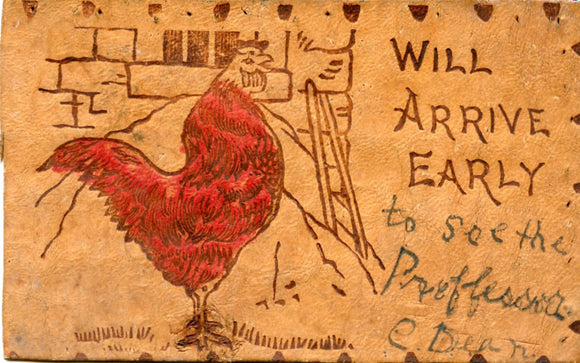 WILL
ARRIVE
EARLY
to see the
Proffessor
C. Dean